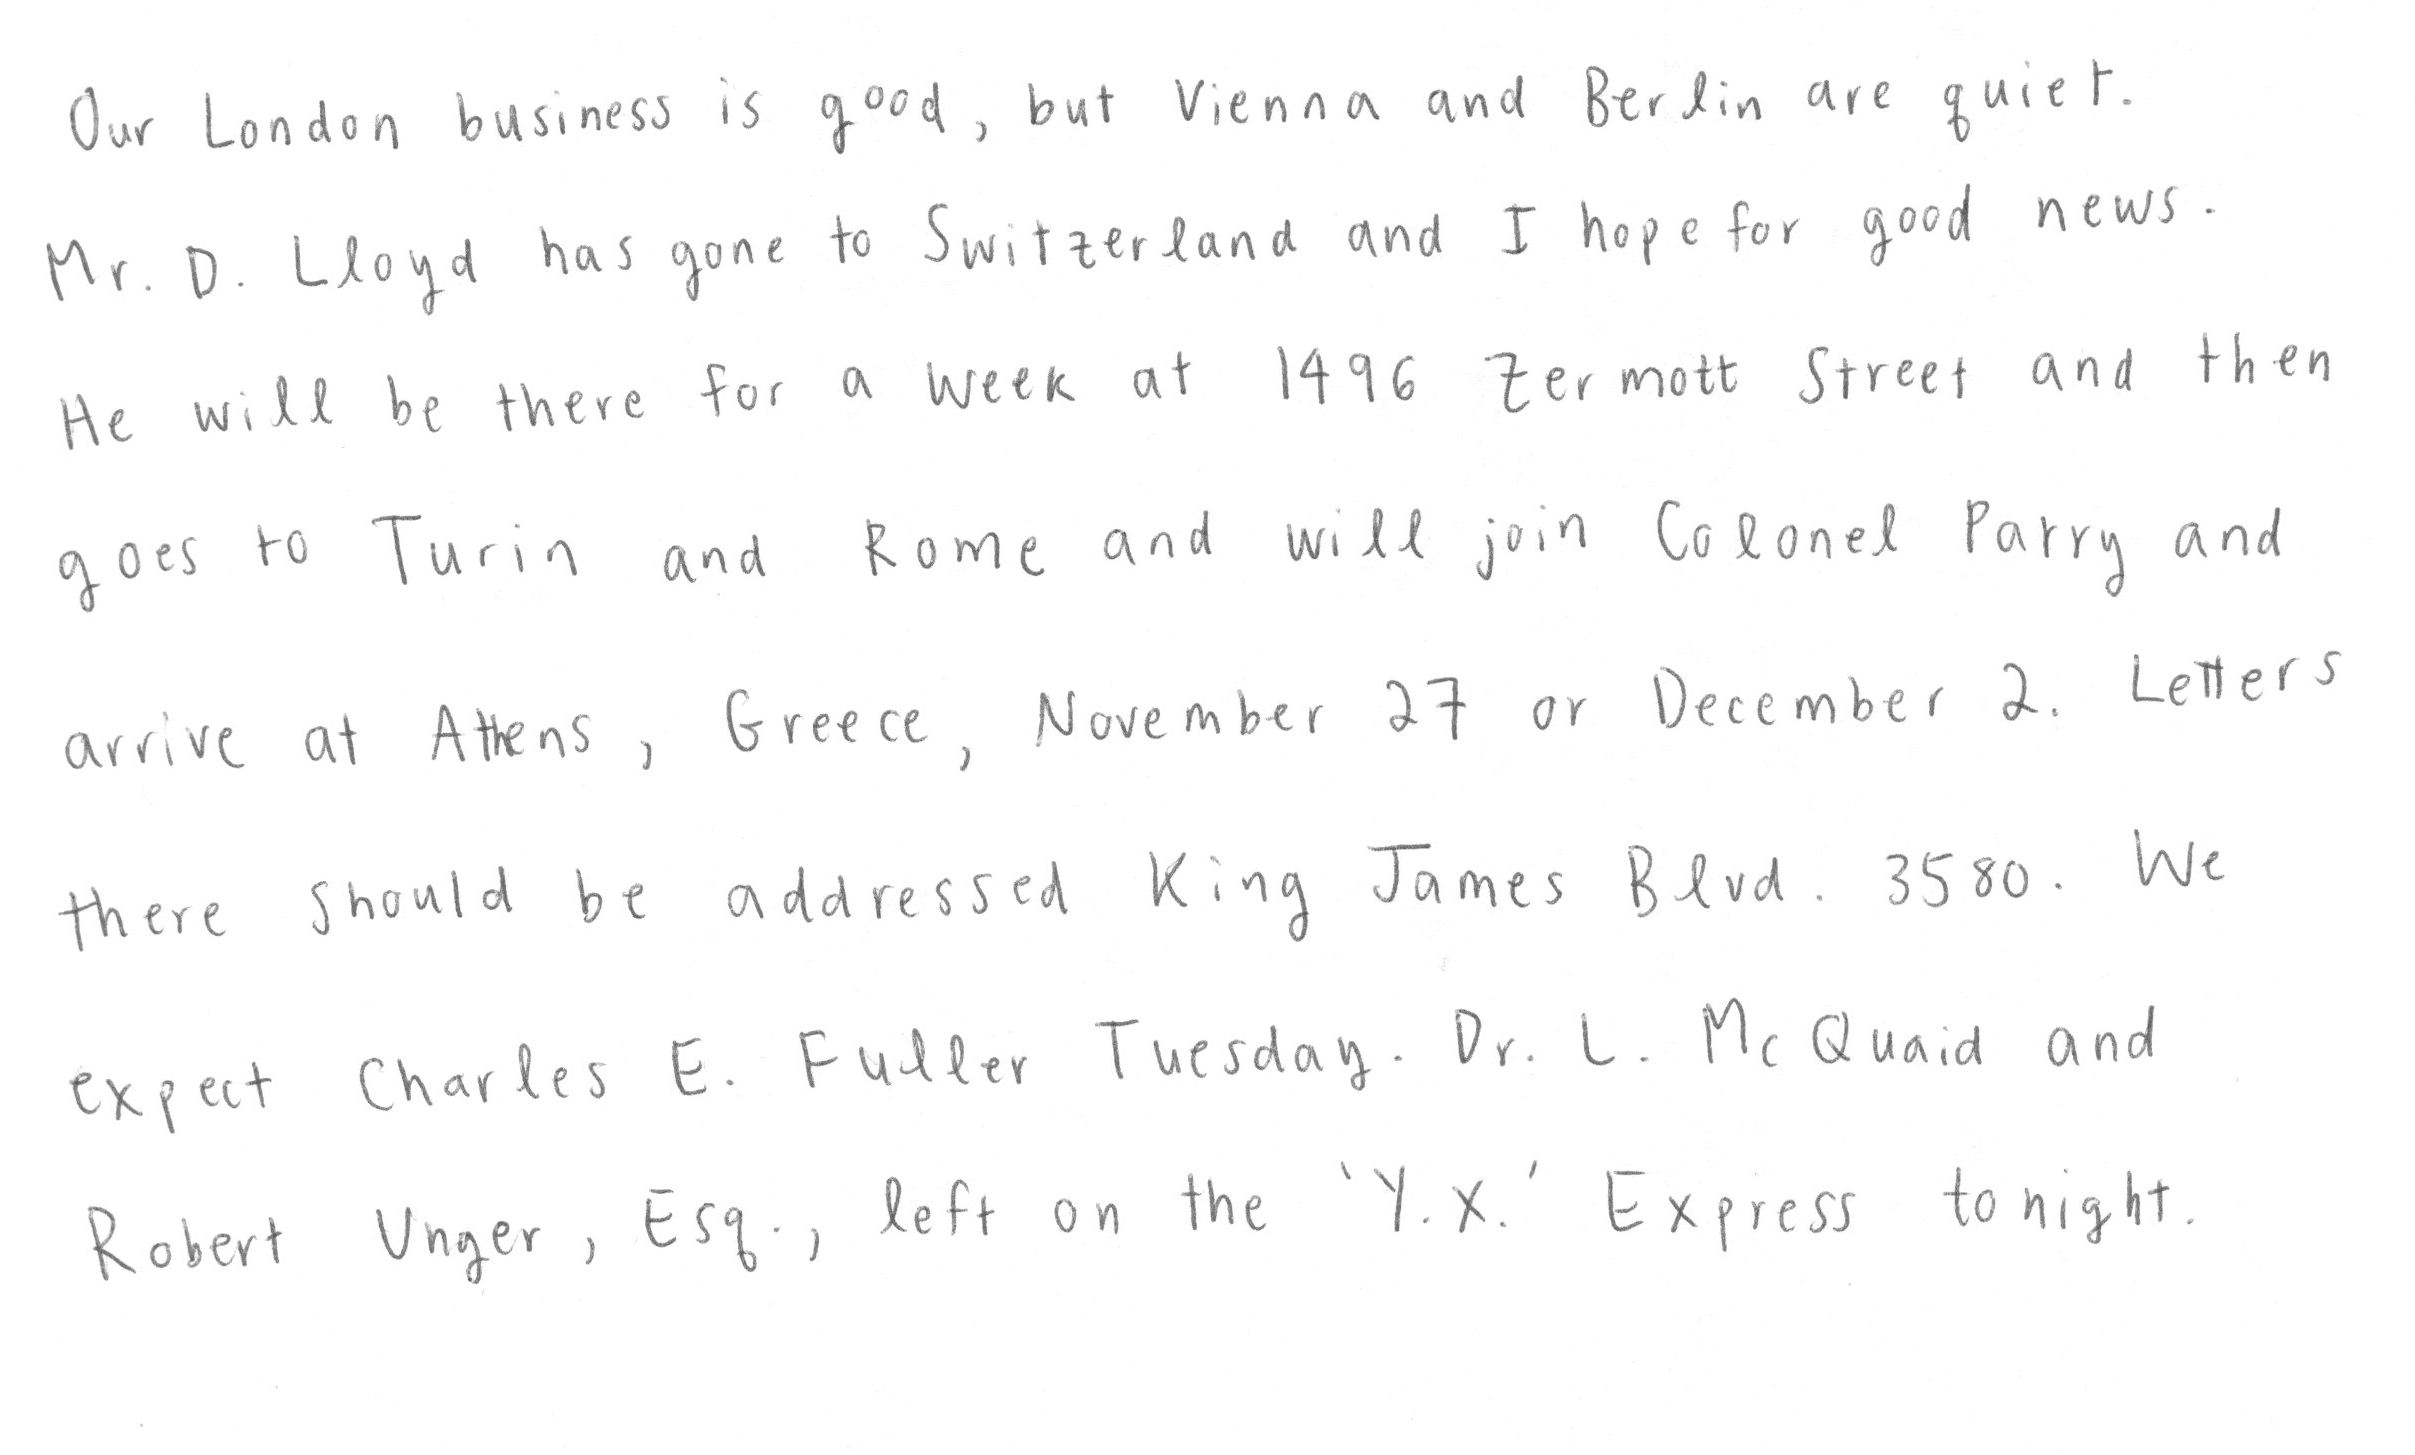 Our London business is good, but Vienna and Berlin are quiet.
Mr. D. Lloyd has gone to Switzerland and I hope for good news.
He will be there for a week at 1496 Zermott Street and then
goes to Turin and Rome and will join Colonel Parry and
arrive at Athens, Greece, November 27 or December 2. Letters
there should be addressed King James Blvd. 3580. We
expect Charles E. Fuller Tuesday. Dr. L. McQuaid and
Robert Unger, Esq., left on the 'Y.X.' Express tonight.